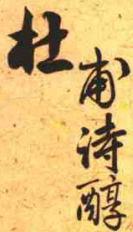 杜甫诗醇